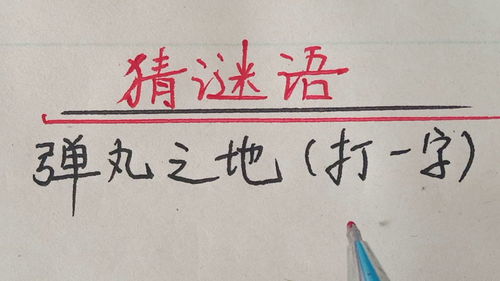 猜谜语
弹丸之地(打一字)